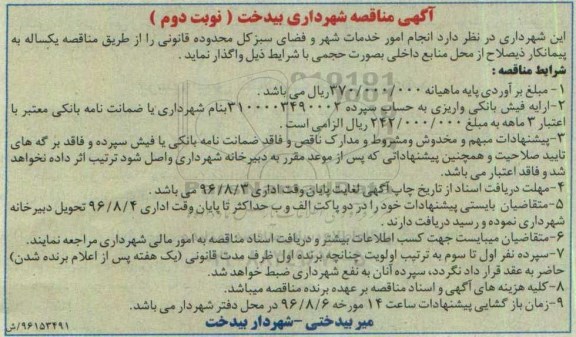 آگهی مناقصه شهرداری بیدخت ( نوبت دوم )
این شهرداری در نظر دارد انجام امور خدمات شهر و فضای سبز کل محدوده قانونی را از طریق مناقصه یکساله به
پیمانکار ذیصلاح از محل منابع داخلی بصورت حجمی با شرایط ذیل واگذار نماید .
شرایط مناقصه :
۱- مبلغ برآوردی پایه ماهیانه ۳۷۰/۰۰۰/۰۰۰ریال می باشد .
۲-ارایه فیش بانکی واریزی به حساب سپرده ۳۱۰۰۰۰۳۴۹۰۰۰۲بنام شهرداری یا ضمانت نامه بانکی معتبر با
اعتبار ۳ ماهه به مبلغ ۲۴۲/۰۰۰/۰۰۰ ریال الزامی است .
۳-پیشنهادات مبهم و مخدوش ومشروط و مدارک ناقص و فاقد ضمانت نامه بانکی یا فیش سپرده و فاقد برگه های
تایید صلاحیت و همچنین پیشنهاداتی که پس از موعد مقرر به دبیرخانه شهرداری واصل شود ترتیب اثر داده نخواهد
شد و فاقد اعتبار می باشد.
۴-مهلت دریافت اسناد از تاریخ چاپ آگهی لغایت پایان وقت اداری ۹۶/۸/۳ می باشد .
۵-متقاضیان بایستی پیشنهادات خود را در دو پاکت الف و ب حداکثر تا پایان وقت اداری ۹۶/۸/۴ تحویل دبیرخانه
شهرداری نموده و رسید دریافت دارند .
۶-متقاضیان میبایست جهت کسب اطلاعات بیشتر و دریافت اسناد مناقصه به امور مالی شهرداری مراجعه نمایند.
۷-سپرده نفر اول تا سوم به ترتیب اولویت چنانچه برنده اول ظرف مدت قانونی (یک هفته پس از اعلام برنده شدن)
حاضر به عقد قرار داد نگردد، سپرده آنان به نفع شهرداری ضبط خواهد شد.
۸-کلیه هزینه های آگهی و اسناد مناقصه بر عهده برنده مناقصه میباشد.
۹-زمان باز گشایی پیشنهادات ساعت ۱۴ مورخه ۹۶/۸/۶ در محل دفتر شهردار می باشد.
میر بیدختی -شهردار بیدخت
۹۶۱۵۳۴۹۱/ش